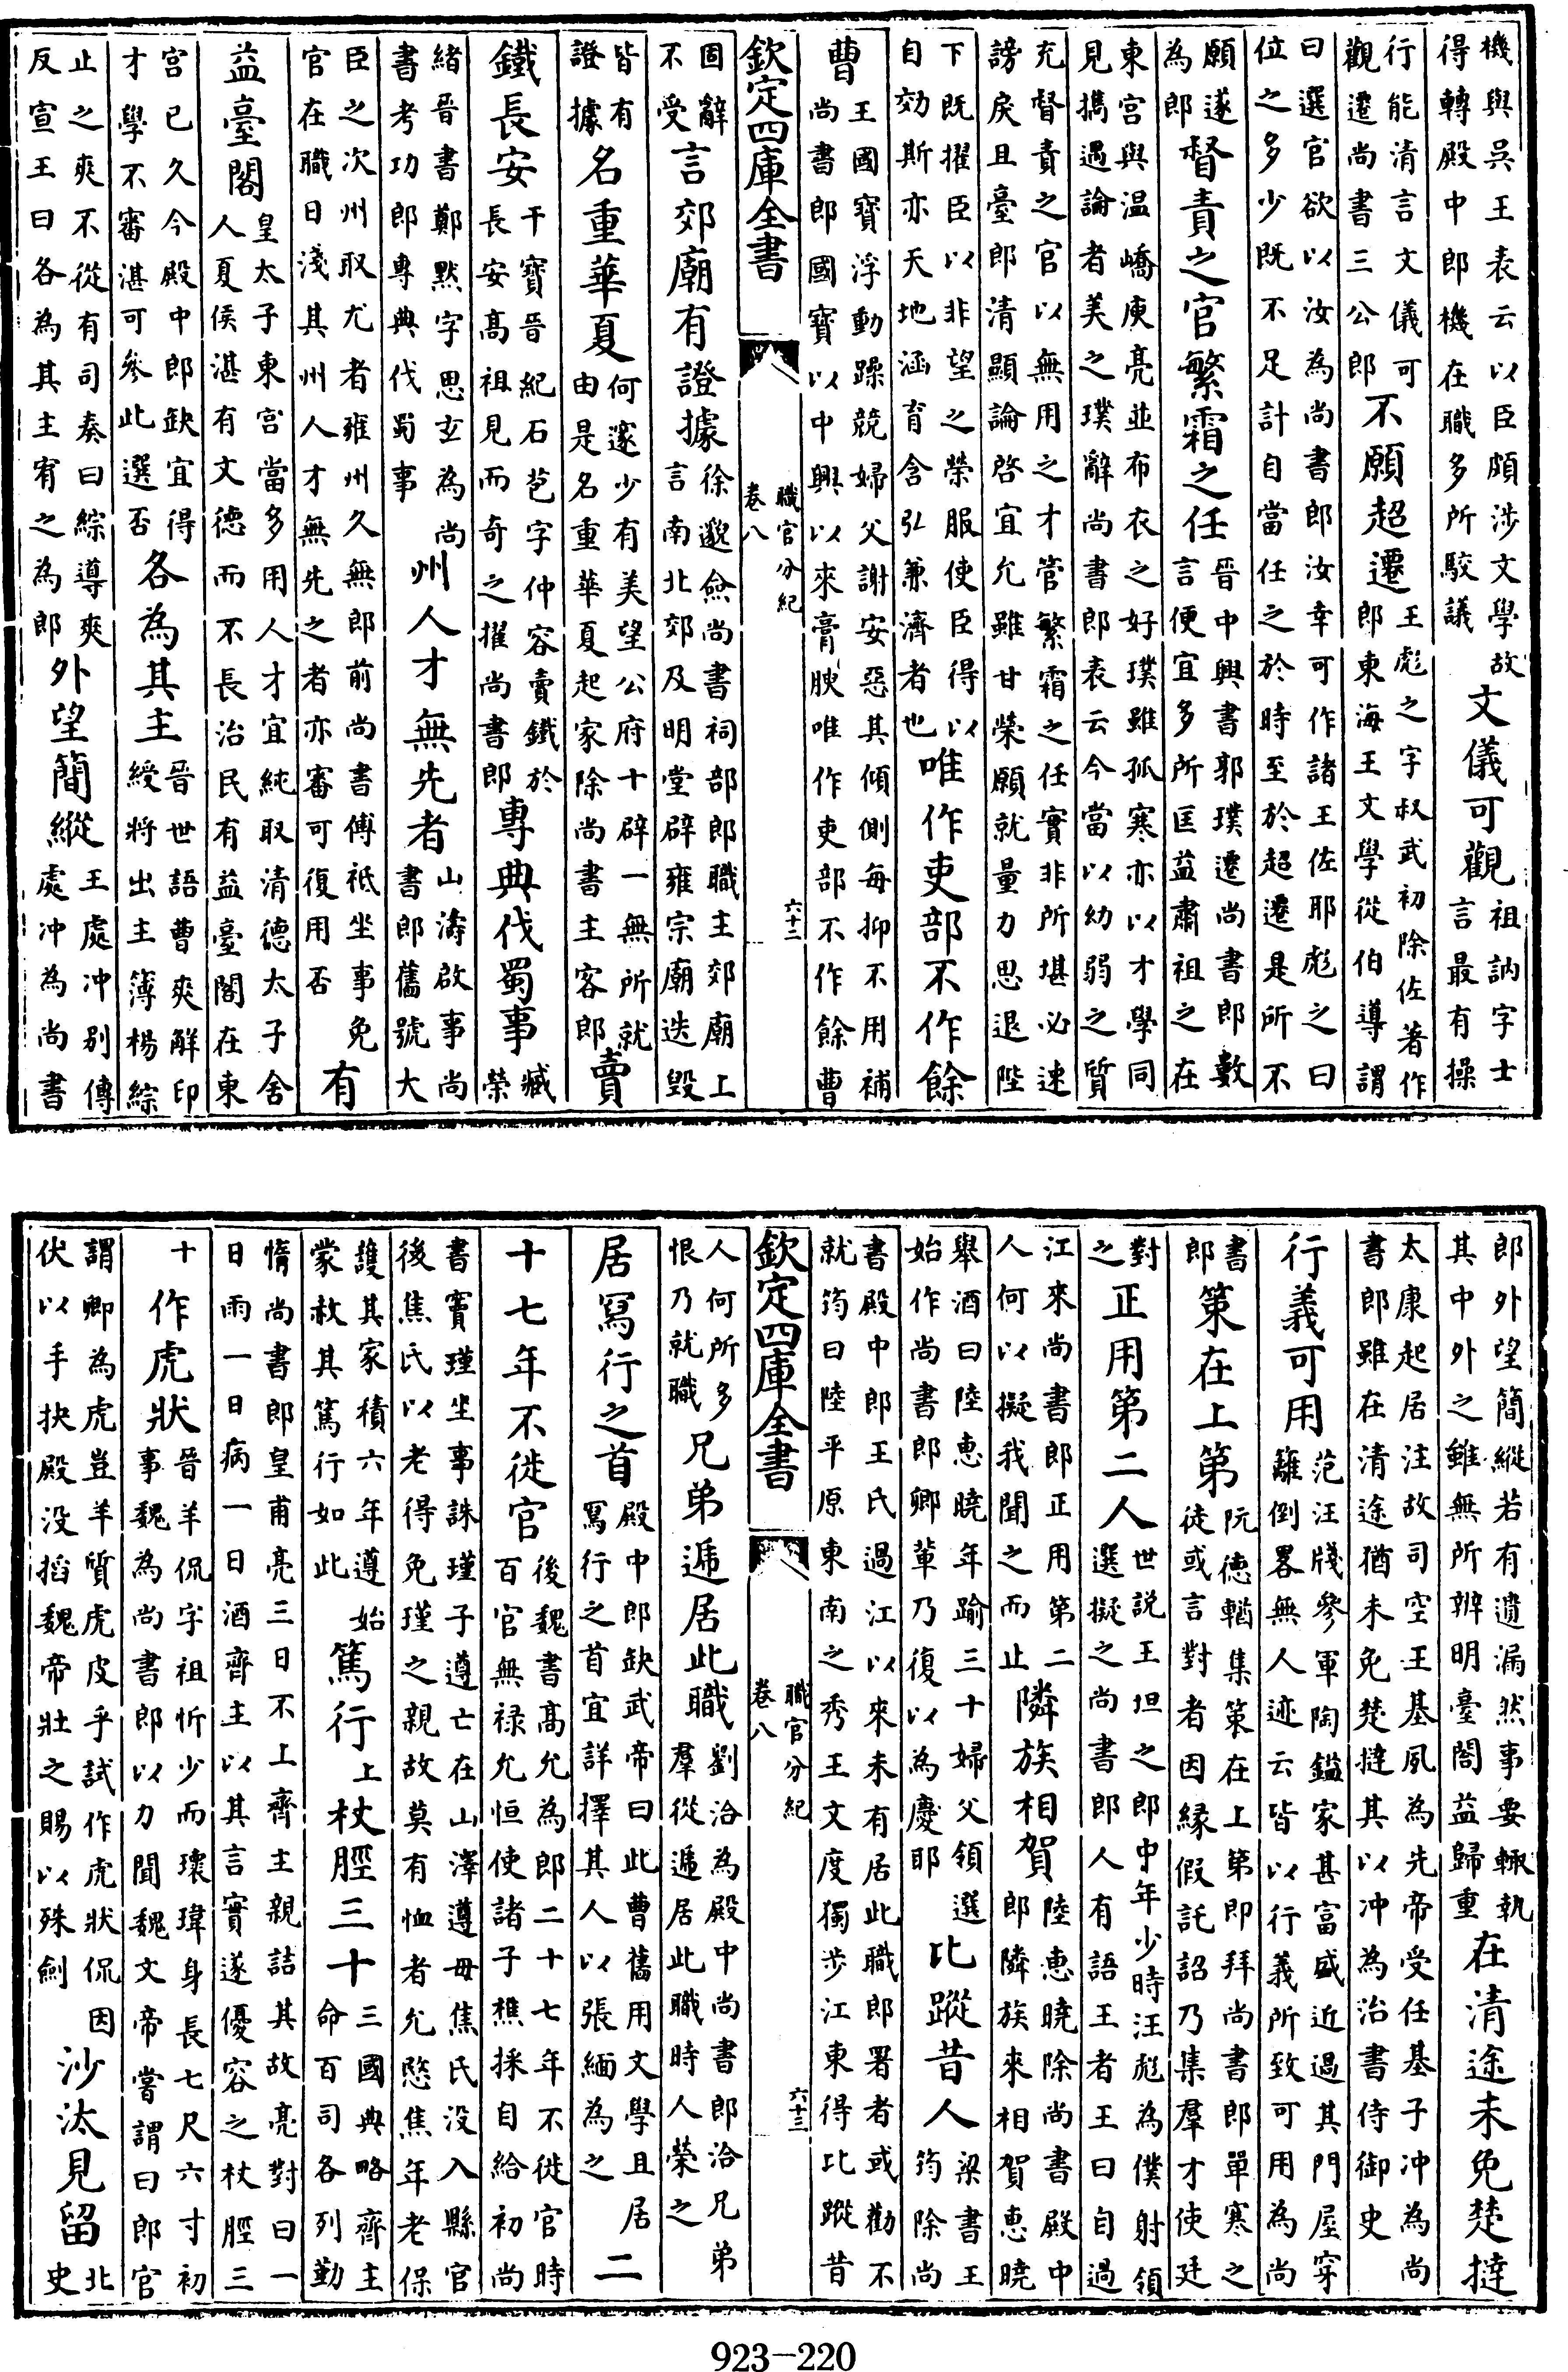 機與吳王表云以臣頗涉文學故得轉殿中郎機在職多所駮議文儀可觀祖訥字士言最有操
行能清言文儀可觀遷尚書三公郎不願超遷王彪之字叔武初除佐著作郎東海王文學從伯導謂
曰選官欲以汝為尚書郎汝幸可作諸王佐耶彪之曰位之多少既不足計自當任之於時至於超遷是所不
願遂為郎督責之官繁霜之任晉中興書郭璞遷尚書郎數言便宜多所匡益肅祖之在
東宮與温嶠庾亮並布衣之好璞雖孤寒亦以才學同見擕遇論者美之璞辭尚書郎表云今當以幼弱之質
充督責之官以無用之才管繁霜之任實非所堪必速謗戾且臺郎清顯論啓宜允雖甘榮願就量力思退陛
下既擢臣以非望之榮服使臣得以自効斯亦天地涵育含弘兼濟者也唯作吏部不作餘
曹王國寶浮動躁競婦父謝安惡其傾側每抑不用補尚書郎國寶以中興以來膏腴唯作吏部不作餘曹
欽定四庫全書 職官分紀 卷八 六十二
固辭不受言郊廟有證據徐邈僉尚書祠部郎職主郊廟上言南北郊及明堂辟雍宗廟迭毀
皆有證據名重華夏何邃少有美望公府十辟一無所就由是名重華夏起家除尚書主客郎賣
鐵長安干寶晉紀石苞字仲容賣鐵於長安高祖見而奇之擢尚書郎專典伐蜀事臧榮
緒晉書鄭默字思玄為尚書考功郎專典伐蜀事州人才無先者山濤啟事尚書郎舊號大
臣之次州取尤者雍州久無郎前尚書傅祗坐事免官在職日淺其州人才無先之者亦審可復用否有
益臺閣皇太子東宮當多用人才宜純取清德太子舍人夏侯湛有文德而不長治民有益臺閣在東
宮已久今殿中郎缺宜得才學不審湛可參此選否各為其主晉世語曹爽解印綬將出主簿楊綜
止之爽不從有司奏曰綜導爽反宣王曰各為其主宥之為郎外望簡縱王處冲別傳處冲為尚書
郎外望簡縱若有遺漏然事要輒執其中外之雖無所辨明臺閣益歸重在清途未免楚撻
太康起居注故司空王基夙為先帝受任基子冲為尚書郎雖在清途猶未免楚撻其以冲為治書侍御史
行義可用范汪牋參軍陶鎰家甚富盛近過其門屋穿籬倒畧無人迹云皆以行義所致可用為尚
書郎策在上第阮德輶集策在上第即拜尚書郎單寒之徒或言對者因緣假託詔乃集羣才使廷
對之正用第二人世説王坦之郎中年少時江彪為僕射領選擬之尚書郎人有語王者王曰自過
江來尚書郎正用第二人何以擬我聞之而止隣族相賀陸惠曉除尚書殿中郎隣族來相賀惠曉
舉酒曰陸惠曉年踰三十婦父領選始作尚書郎卿輩乃復以為慶耶比蹤昔人梁書王筠除尚
書殿中郎王氏過江以來未有居此職郎署者或勸不就筠曰陸平原東南之秀王文度獨步江東得比蹤昔
欽定四庫全書 職官分紀 卷八 六十三
人何所多恨乃就職兄弟遞居此職劉洽為殿中尚書郎洽兄弟羣從遞居此職時人榮之
居寫行之首殿中郎缺武帝曰此曹舊用文學且居寫行之首宜詳擇其人以張緬為之二
十七年不徙官後魏書高允為郎二十七年不徙官時百官無祿允恒使諸子樵採自給初尚
書竇瑾坐事誅瑾子遵亡在山澤遵母焦氏没入縣官後焦氏以老得免瑾之親故莫有恤者允愍焦年老保
護其家積六年遵始蒙赦其篤行如此篤行上杖脛三十三國典略齊主命百司各列勤
惰尚書郎皇甫亮三日不上齊主親詰其故亮對曰一日雨一日病一日酒齊主以其言實遂優容之杖脛三
十作虎狀晉羊侃字祖忻少而瓌瑋身長七尺六寸初事魏為尚書郎以力聞魏文帝嘗謂曰郎官
謂卿為虎豈羊質虎皮乎試作虎狀侃因伏以手抉殿没搯魏帝壯之賜以殊劍沙汰見留北史
923-220